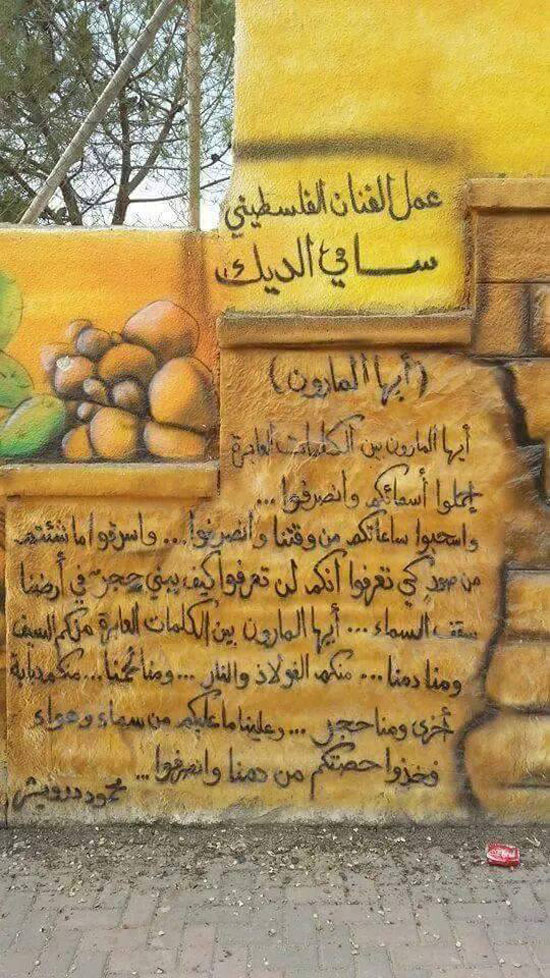 عمل الفنان الفلسطيني
سامي الديك
(أيها المارون)
أيها المارون بين الكلمات العابرة
إحملوا أسمائكم وانصرفوا...
واسحبوا ساعاتكم من وقتنا وانصرفوا... واسرقوا ما شئتم
من صور كي تعرفوا أنكم لن تعرفوا كيف يبني حجر في أرضنا
سقف السماء... أيها المارون بين الكلمات العابرة منكم السيف
ومنا دمنا... منكم الفولاذ والنار... ومنا لحمنا... منكم دبابة
أخرى ومنا حجر... وعلينا ما عليكم من سماء وهواء
فخذوا حصتكم من دمنا وانصرفوا...
محمود درويش